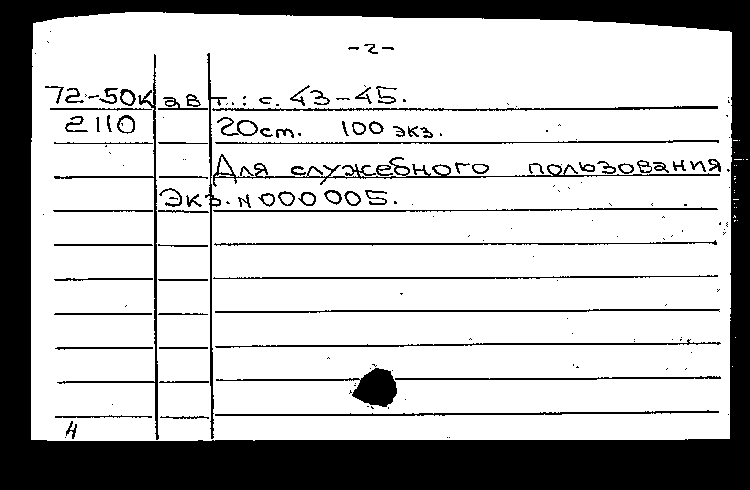 -2-
72-50к авт.: с. 43-45.
2110 20см. 100 экз.
Для служебного пользования.
Экз. N 000005.
н